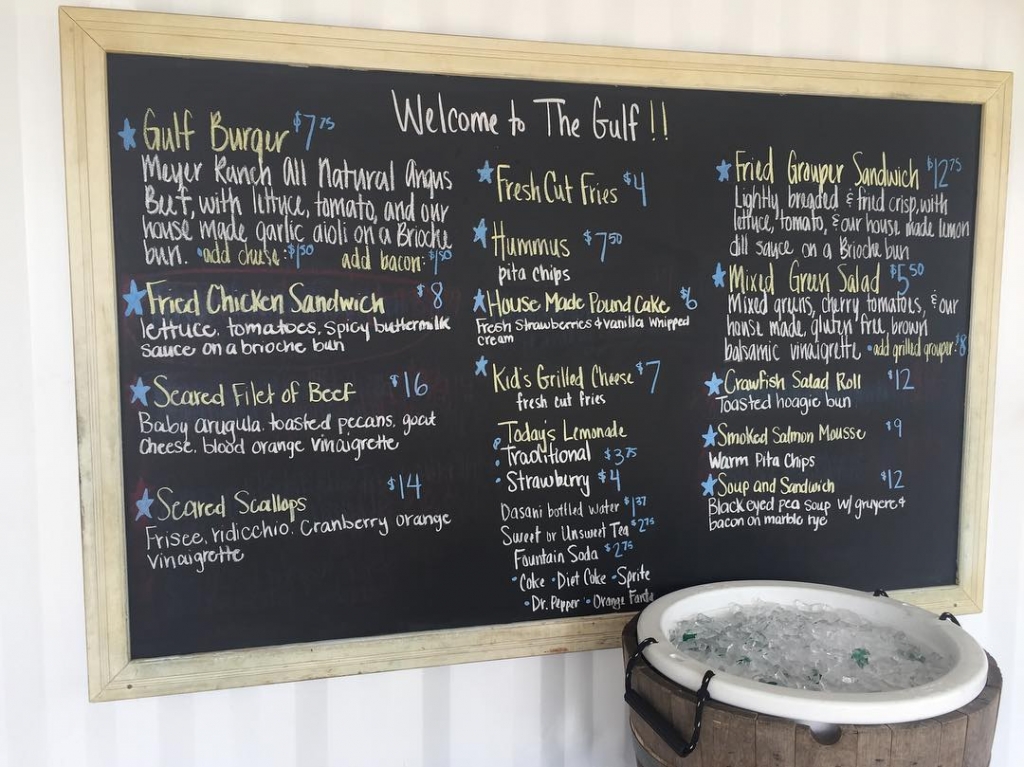 Welcome to The Gulf !!
Gulf Burger $7.75
Meyer Ranch All Natural Angus
Beef, with lettuce, tomato, and our
house made garlic aioli on a Brioche
bun. •add cheese: $1.50 add bacon: $1.50
Fried Chicken Sandwich $8
lettuce, tomatoes, spicy buttermilk
sauce on a brioche bun
Seared Filet of Beef $16
Baby arugula, toasted pecans, goat
cheese, blood orange vinaigrette
Seared Scallops $14
Frisee, ridicchio, cranberry orange
vinaigrette
Fresh Cut Fries $4
Hummus $7.50
pita chips
House Made Pound Cake $6
Fresh Strawberries & vanilla whipped
cream
Kid's Grilled Cheese $7
fresh cut fries
Today's Lemonade
• Traditional $3.75
• Strawberry $4
Dasani bottled water $1.37
Sweet or Unsweet Tea $2.75
Fountain Soda $2.75
•Coke •Diet Coke •Sprite
•Dr. Pepper •Orange Fanta
Fried Grouper Sandwich $12.75
Lightly breaded & fried crisp, with
lettuce, tomato, & our house made lemon
dill sauce on a Brioche bun
Mixed Green Salad $5.50
Mixed greens, cherry tomatoes, & our
house made, gluten free, brown
balsamic vinaigrette •add grilled grouper: $8
Crawfish Salad Roll $12
Toasted hoagie bun
Smoked Salmon Mousse $9
Warm Pita Chips
Soup and Sandwich $12
Black eyed pea soup w/ gruyere &
bacon on marble rye